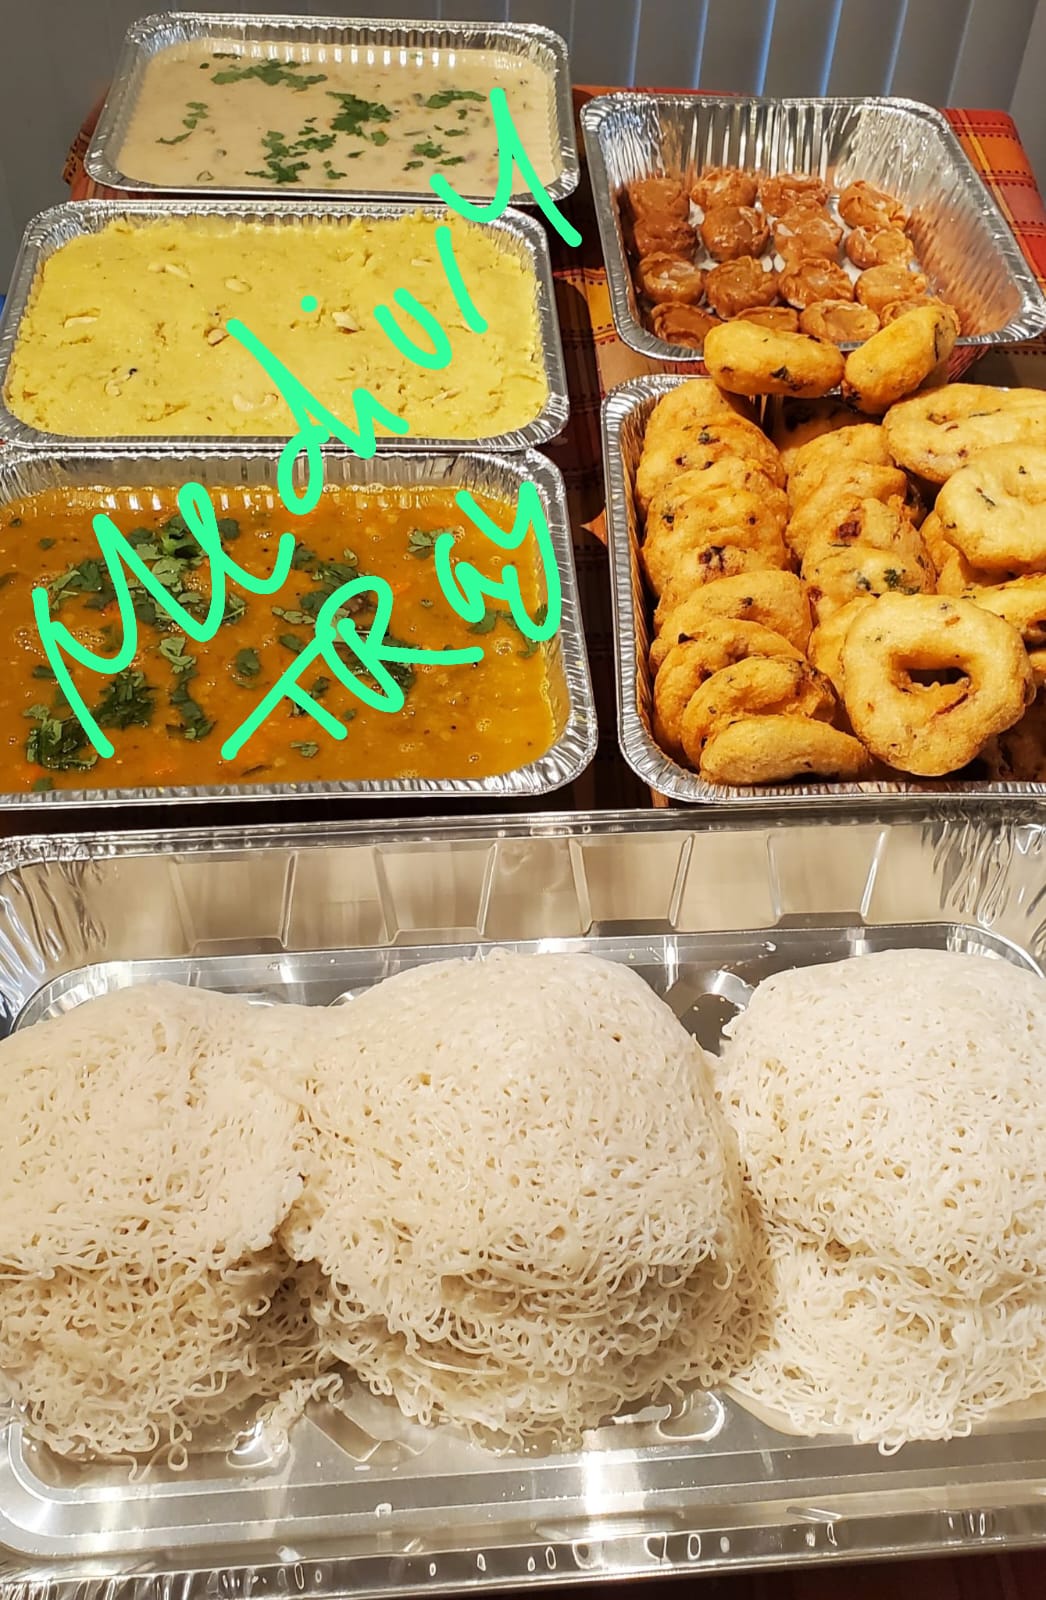 Medium
TRay